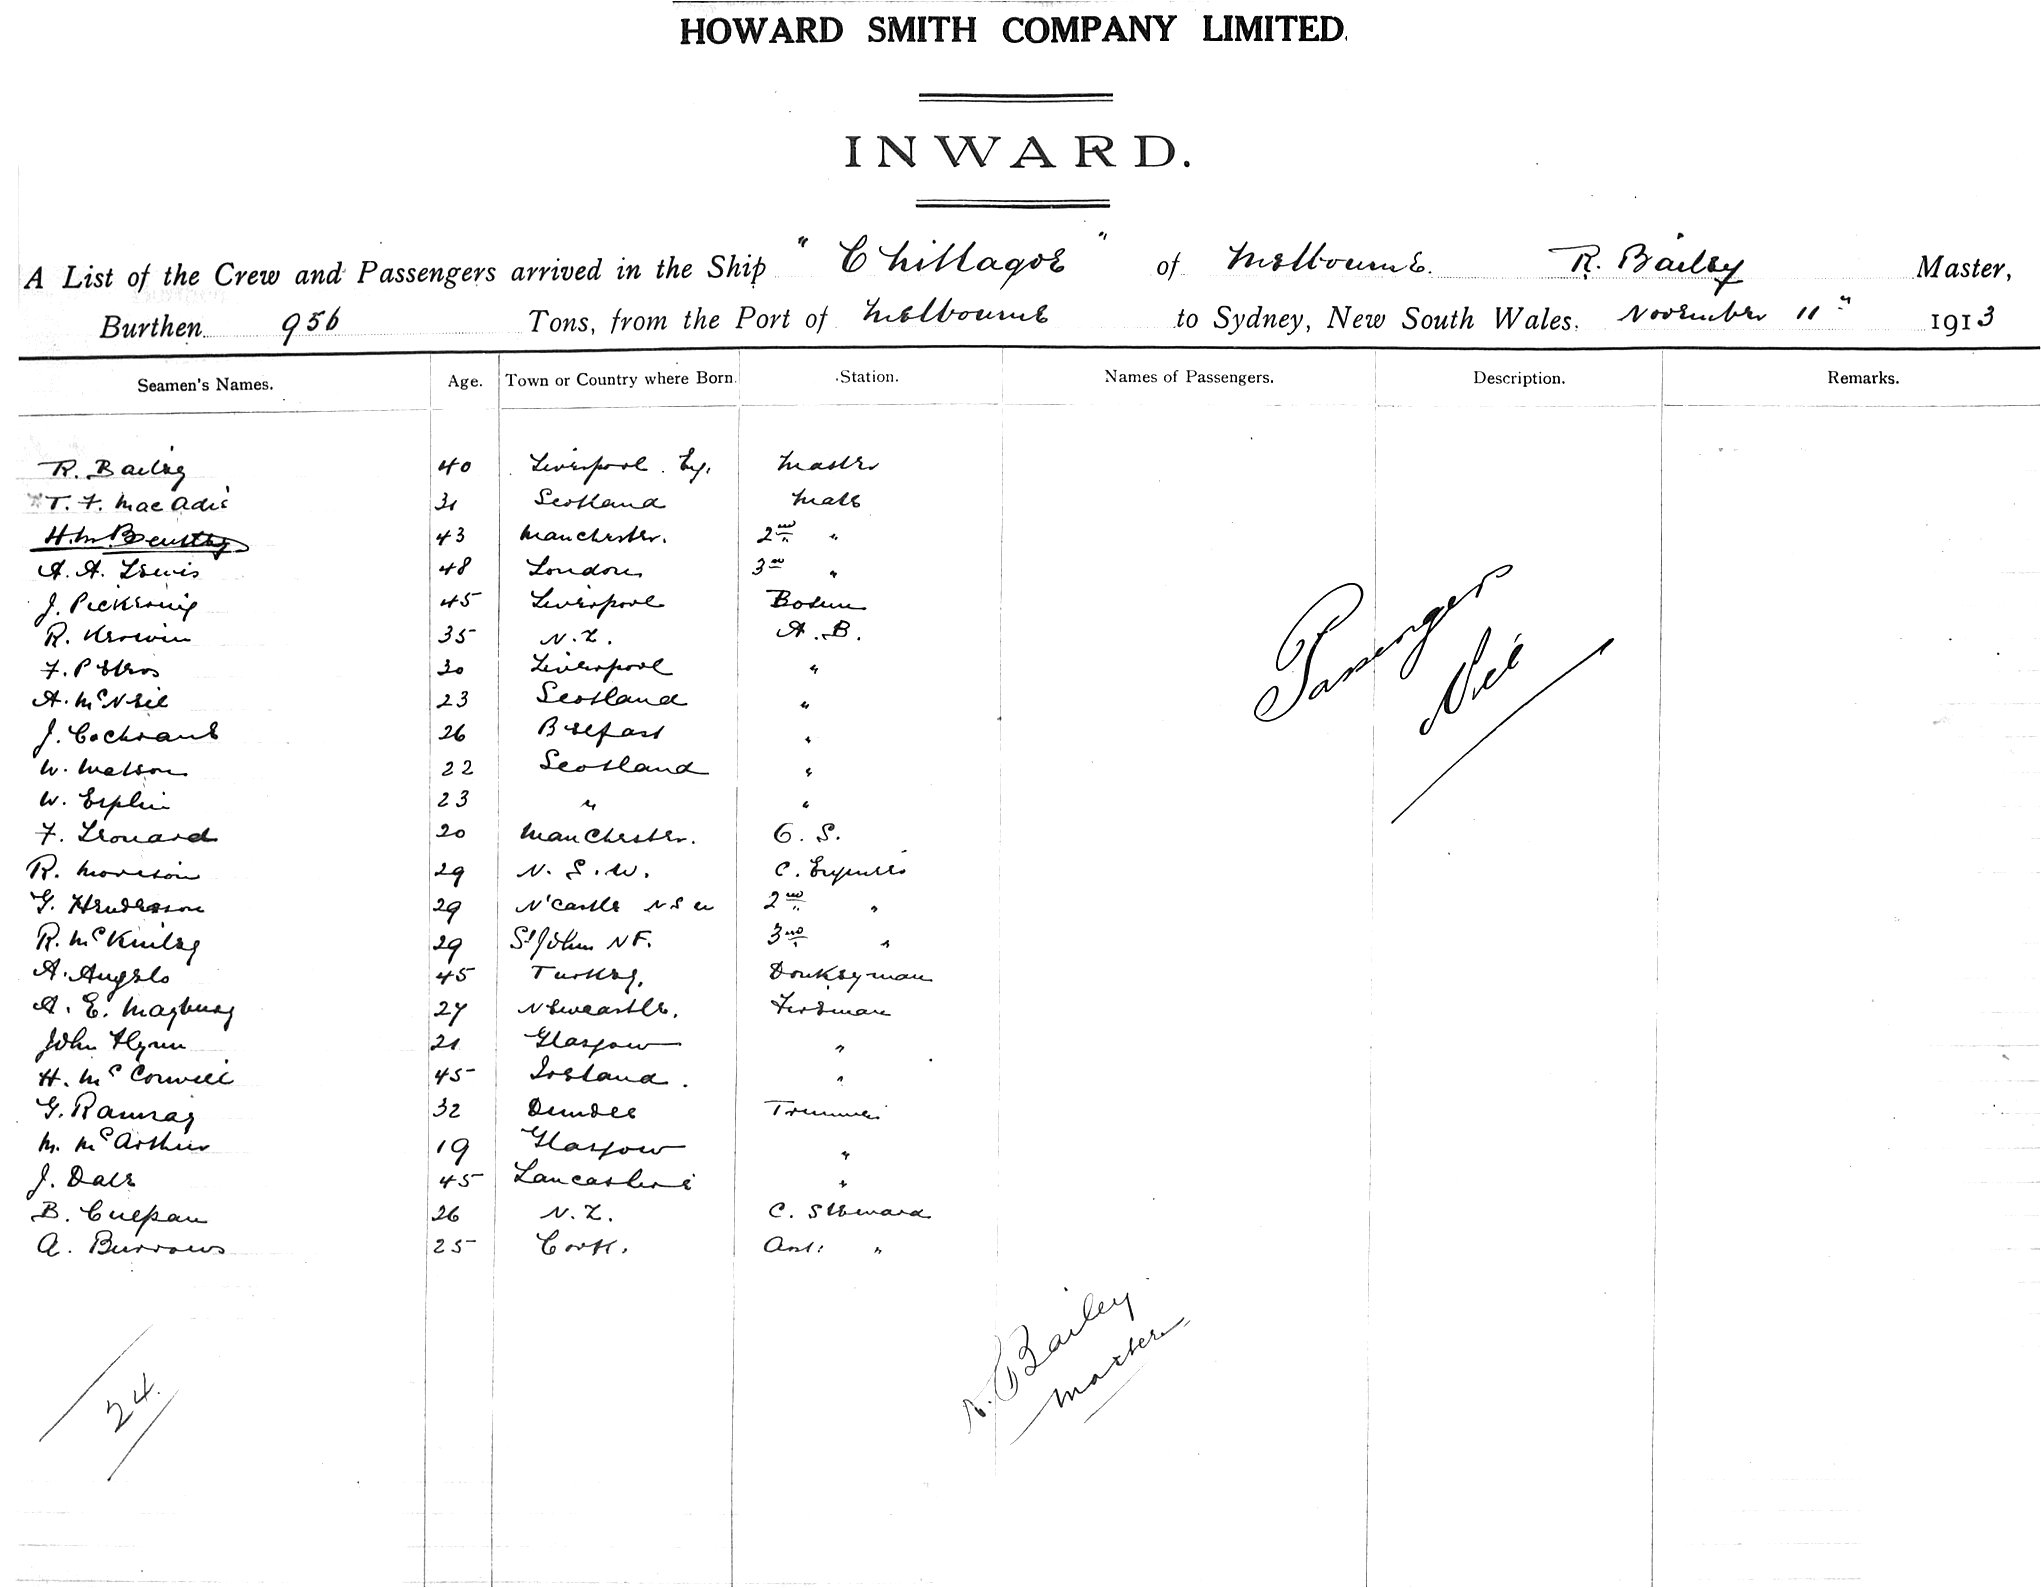 HOWARD SMITH COMPANY LIMITED.
INWARD.
A List of the Crew and Passengers arrived in the Ship "Chillagoe" of Melbourne. R. Bailey Master,
Burthen 956 Tons, from the Port of Melbourne to Sydney, New South Wales, November 11" 1913
Seamen's Names. Age. Town or Country where Born. Station. Names of Passengers. Description. Remarks.
R. Bailey 40 Liverpool Eng. Master
T. F. MacAdie 31 Scotland Mate
H. M. Bentley 43 Manchester. 2nd "
A. A. Lewis 48 London 3rd "
J. Pickering 45 Liverpool Bosun
R. Kerwin 35 N.Z. A.B.
F. Petros 30 Liverpool "
A. McNeil 23 Scotland "
J. Cochrane 26 Belfast "
W. Watson 22 Scotland "
W. Esplin 23 " "
F. Leonard 20 Manchester. O.S.
R. Morrison 29 N.S.W. C. Engineer
G. Henderson 29 N'Castle NSW 2nd "
R. McKinley 29 St John NF. 3rd "
A. Angelo 45 Turkey, Donkeyman
A. E. 27 Newcastle. Fireman
John Flynn 21 Glasgow "
H. McConvill 45 Ireland. "
G. Ramsay 32 Dundee Trimmer
M. McArthur 19 Glasgow "
J. Dale 45 Lancashire "
B. 26 N.Z. C. Steward
A. Burrows 25 Cork. Asst: "
Passengers
Nil
R. Bailey
Master
24.